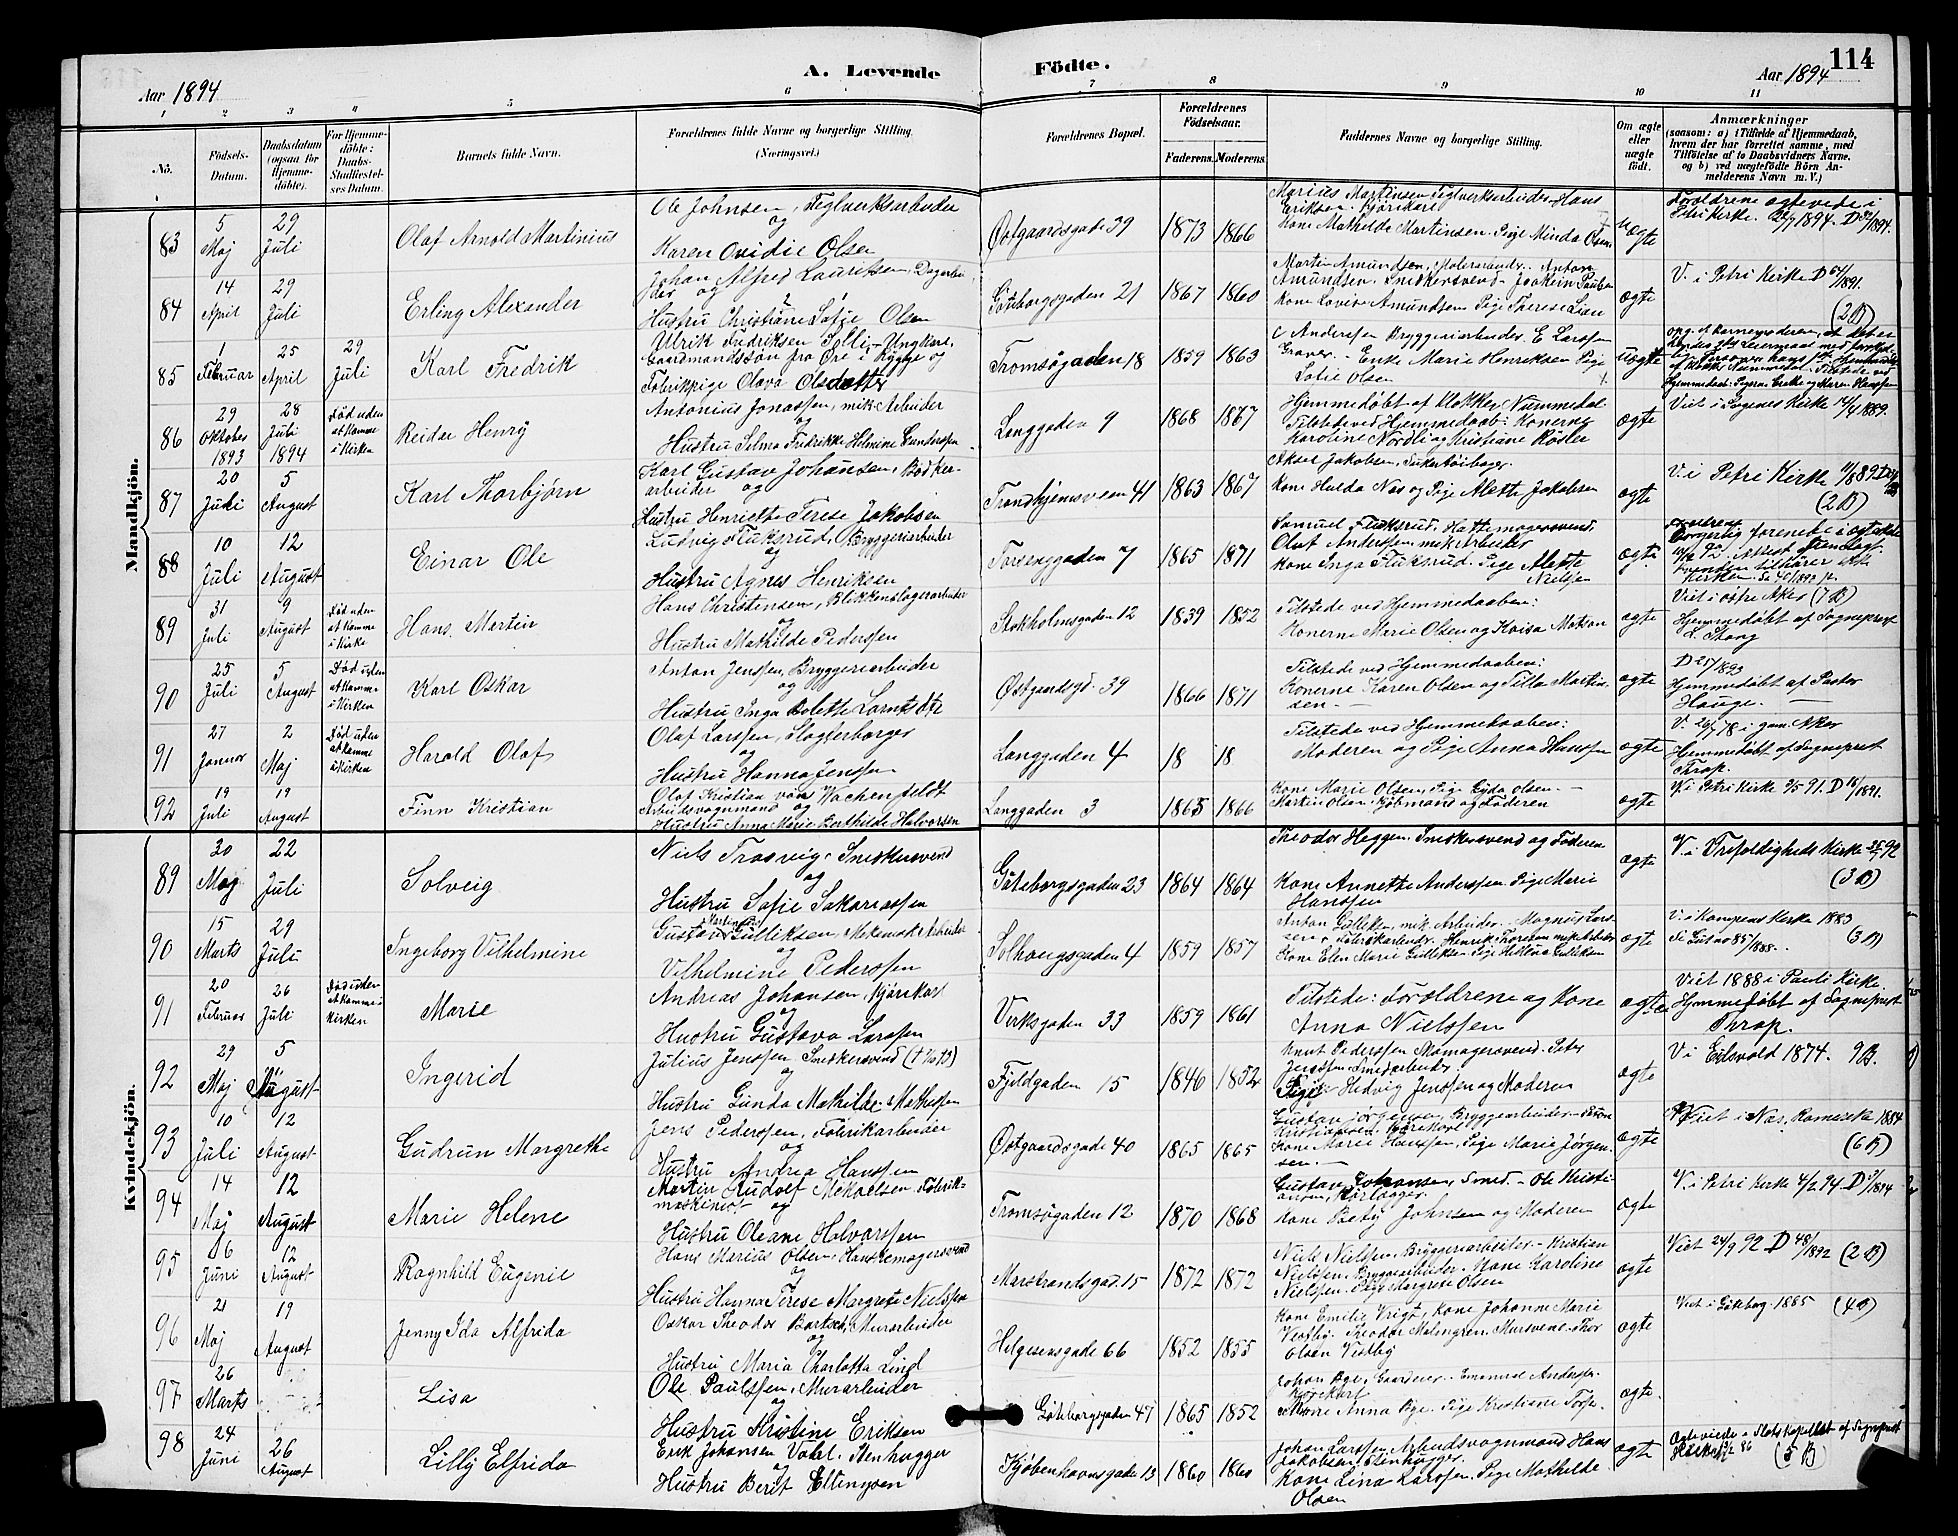 114
A. Levende
Födte.
Aar 1894
Aar 1894
1 2 3 4 5 6 7 8 9 10 11
No.
Födsels-
Datum.
Daabsdatum
(ogsaa for
Hjemme-
döbte).
For Hjemme-
döbte:
Daabs-
Stadfæstel-
ses Datum.
Barnets fulde Navn.
Forældrenes fulde Navne og borgerlige Stilling.
(Næringsvei.)
Forældrenes Bopæl.
Forældrenes
Födselsaar.
Faderens. Moderens.
Faddernes Navne og borgerlige Stilling.
Om ægte
eller
uægte
födt.
Anmærkninger
(saasom: a) i Tilfælde af Hjemmedaab,
hvem der har forrettet samme, med
Tilföielse af to Daabsvidners Navne,
og b) ved uægtefödte Börn An-
melderens Navn m. V.)
Mandkjön.
83
5
Maj
29
Juli
Olaf Arnold Martinius
Ole Johnsen, Teglverksarbeider
og
Karen Ovidie Olsen
Østgaardsgade 39
1873 1866
Marius Martinsen Teglverksarbeider Hans
Eriksen Kjørekarl
Kone Mathilde Martinsen. Pige Minda Olsen
uægte
Forældrene ægteviede i
Petri Kirke. 1894.
84
14
April
29
Juli
Erling Alexander
Johan Alfred Lauritsen, Dagarbei
der og
Hustru Christiane Sofie Olsen
Göteborgsgaden 21
1867 1860
Martin Amundsen, Malersvend. Anton
Amundsen, Snekkersvend. Joakim Paulsen
Kone Lovise Amundsen Pige Therese Lien
ægte
V. i Petri Kirke D 64/1891.
(2 B)
85
1
Februar
25
April
29
Juli
Karl Fredrik
Ulrik Fredriksen Tolli, Ungkarl,
Gaardmandssøn fra Øre i Rygge og
Fabrikpige Olava Olsdatter
Tromsögaden 18
1859 1863
C Andersen Bryggeriarbeider. E Larssen
Graver. - Enke Marie Henriksen Pige
Sofie Olsen
uægte
86
29
Oktober
1893
28
Juli
1894
Död uden
at komme
i Kirken
Reidar Henry
Antonius Jonassen, mek Arbeider
og
Hustru Selma Fredrikke Helmine Gundersen
Langgaden 9
1868 1867
Hjemmedøbt af Klokker Nummedal
Tilstede ved Hjemmedaab: Konerne
Karoline Nordli og Kristiane Røsler
ægte
Viet i Sogenes Kirke 14/4 1889.
87
20
Juni
5
August
Karl Thorbjørn
Karl Gustav Johansen, Bødker-
arbeider og
Hustru Henriette Terese Jakobsen
Trondhjemsveien 41
1863 1867
Aksel Jakobsen, Sukertøibager.
Kone Hulda Næs og Pige Alette Jakobsen
ægte
V. i Petri Kirke
(2 B)
88
10
Juli
12
August
Einar Ole
Ludvig Fluksrud, Bryggeriarbeider
og
Hustru Agnes Henriksen
Torvenggaden 7
1865 1871
Samuel Fluksrud, Hattemagersvend.
Oluf Andersen, mek Arbeider
Kone Inga Fluksrud. Pige Alette
Nielsen
ægte
89
31
Juli
9
August
Död uden
at komme
i Kirke
Hans Martin
Hans Christensen, Blikkenslagerarbeider
og
Hustru Mathilde Pedersen
Stokholmsgaden 12
1839 1852
Tilstede ved Hjemmedaaben:
Konerne Marie Olsen og Lovisa Matson
ægte
Viet i østre Aker (7 B)
Hjemmedøbt af Sogneprest
L. Stang
90
25
Juli
5
August
Död uden
at komme
i Kirken
Karl Oskar
Anton Jenssen, Bryggeriarbeider
og
Hustru Inga Bolette Larnsdtr
Østgaardsgd. 39
1866 1871
Tilstede ved Hjemmedaaben:
Konerne Karen Olsen og Tilla Martin-
sen.
ægte
D 25/1893
Hjemmedøbt af Pastor
Hauge.
91
27
Januar
2
Maj
Död uden
at komme
i Kirken
Harald Olaf
Olaf Larssen, Slagterborger
og
Hustru Hanna Jenssen
Langgaden 4
18 18
Tilstede ved Hjemmedaaben:
Moderen og Pige Anna Hanssen
ægte
V. 26/7 78 i gml. Aker
Hjemmedøbt af Sogneprest
Thrap.
92
19
Juli
19
August
Finn Kristian
Olaf Kristian von Wachenfeldt
Arbeidsvognmand og
Hustru Anna Marie Bothilde Halvorsen
Langgaden 3
1865 1866
Kone Marie Olsen, Pige Gyda Olsen.
Martin Olsen Kjøbmand og Faderen
ægte
V. i Petri Kirke 3/5 91. D 16/1891.
Kvindekjön.
89
30
Maj
22
Juli
Solveig
Niels Trosvig, Snekkersvend
og
Hustru Sofie Sakariassen
Göteborgsgaden 23
1864 1864
Theodor Heggen. Snekkersvend og Faderen
Kone Annette Anderssen Pige Marie
Hanssen
ægte
V. i Trefoldigheds Kirke 92
(3 B)
90
15
Marts
29
Juli
Ingeborg Vilhelmine
Gustav Martinius Gulliksen, Mekanisk Arbeider
og
Vilhelmine Pedersen
Solhaugsgaden 4
1859 1857
Anton Gulliksen, mek Arbeider. Magnus Lars-
sen, Fabrikarbeider. Henrik Thoresen mek Arbeider
Kone Elen Marie Gulliksen Pige Helena Gulliksen
ægte
V. i Kampens Kirke 1883
(3 B)
91
20
Februar
26
Juli
Död uden
at komme i
Kirken
Marie
Andreas Johansen, Kjørekarl
og
Hustru Gustava Larssen
Verksgaden 33
1859 1861
Tilstede: Forældrene og Kone
Anna Nielssen
ægte
Viet 1888 i Pauli Kirke.
Hjemmedøbt af Sogneprest
Thrap.
92
29
Maj
5
August
Ingerid
Julius Jenssen, Snekkersvend
og
Hustru Gunda Mathilde Mathissen
Fjeldgaden 15
1846 1852
Knut Pederssen Skomagersvend. Peter
Jenssen Smedarbeider.
Pige Hedvig Jenssen og Moderen
ægte
V i Eidsvold 1874. 9 B.
93
10
Juli
12
August
Gudrun Margrethe
Jens Pederssen, Fabrikarbeider
og
Hustru Andrea Hanssen
Østgaardsgade 40
1865 1865
Gustav Jörgensen, Bryggeriarbeider.
Kristiansen, Kjørekarl
Kone Marie Hanssen, Pige Marie Jørgen-
sen.
ægte
Viet i Næs, Romerike 1884
(6 B)
94
14
Maj
12
August
Marie Helene
Martin Rudolf Mekaelsen, Fabrik-
maskinist og
Hustru Oleane Halvorssen
Tromsögaden 12
1870 1868
Gustav Johansen, Smed. - Ole Kristi-
ansen, Rørlægger.
Kone Betzy Johnsen og Moderen
ægte
V. i Petri Kirke 4/2 94. D 3/1894
95
6
Juni
12
August
Ragnhild Eugenie
Hans Marius Olsen, Hanskemagersvend
og
Hustru Hanna Terese Margrete Nielssen
Marstrandsgd. 15
1872 1872
Niels Nielsen, Bryggeriarbeider. - Kristian
Nielssen, Bryggeriarbeider. Kone Karoline
Nielssen. Pige Margrete Olsen
ægte
Viet 24/9 92 D 48/1892 (2 B)
96
21
Maj
19
August
Jenny Ida Alfrida
Oskar Theodor Bartsch, Murarbeider
og
Hustru Maria Charlotta Lind
Helgesensgade 66
1852 1855
Kone Emilie Vrigt, Kone Johanne Marie
Vestby. Theodor Malmgren, Mursvend. Thor
Olsen Vestby
ægte
Viet i Göteborg 1885 (4 B)
97
26
Marts
Lisa
Ole Paulssen, Murarbeider
og
Hustru Kristine Eriksen
Göteborgsgaden 47
1865 1852
Johan Bye, Gaardeier. Emanuel Andersen.
Kjørekarl
Kone Anna Bye. Pige Kristiane Torp.
ægte.
98
24
Juni
26
August
Lilly Elfrida
Erik Johansen Vatel. Stenhugger
og
Hustru Berit Ellingsen
Kjøbenhavnsgade 13
1860 1860
Johan Larssen, Arbeidsvognmand Hans
Jakobsen, Stenhugger.
Kone Lina Larssen. Pige Mathilde
Olsen
ægte
Ægteviede i Slotskapellet af Sogneprest
(5 B)